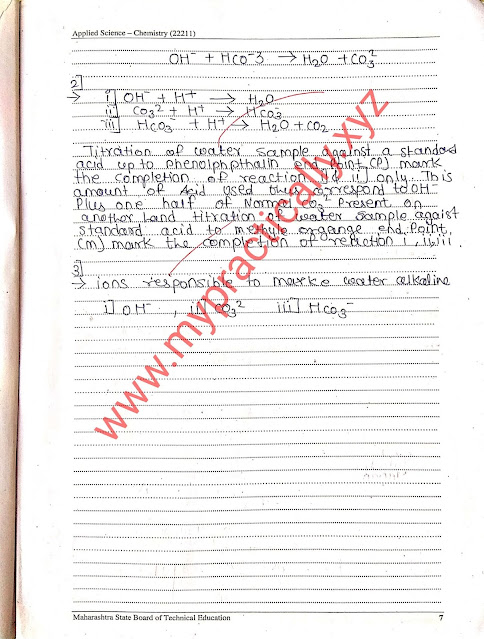 Applied Science – Chemistry (22211)
OH⁻ + HCO⁻3 → H2O + CO3²
2]
→ i] OH⁻ + H+ → H2O
ii] CO3² + H+ → HCO3
iii] HCO3⁻ + H+ → H2O + CO2
Titration of water sample against a standard
acid up to phenolphthalin end point (P) mark
the completion of reaction i] & ii] only. This
amount of Acid used thus correspond to OH⁻
Plus one half of Normal CO3² Present on
another hand titration of water sample agaist
standard acid to methyle organge end Point.
(m) mark the completion of reaction i, ii, iii.
3]
→ ions responsible to marke water alkaline
i] OH⁻, ii] CO3² iii] HCO3⁻
www.mypractically.xyz
Maharashtra State Board of Technical Education 7